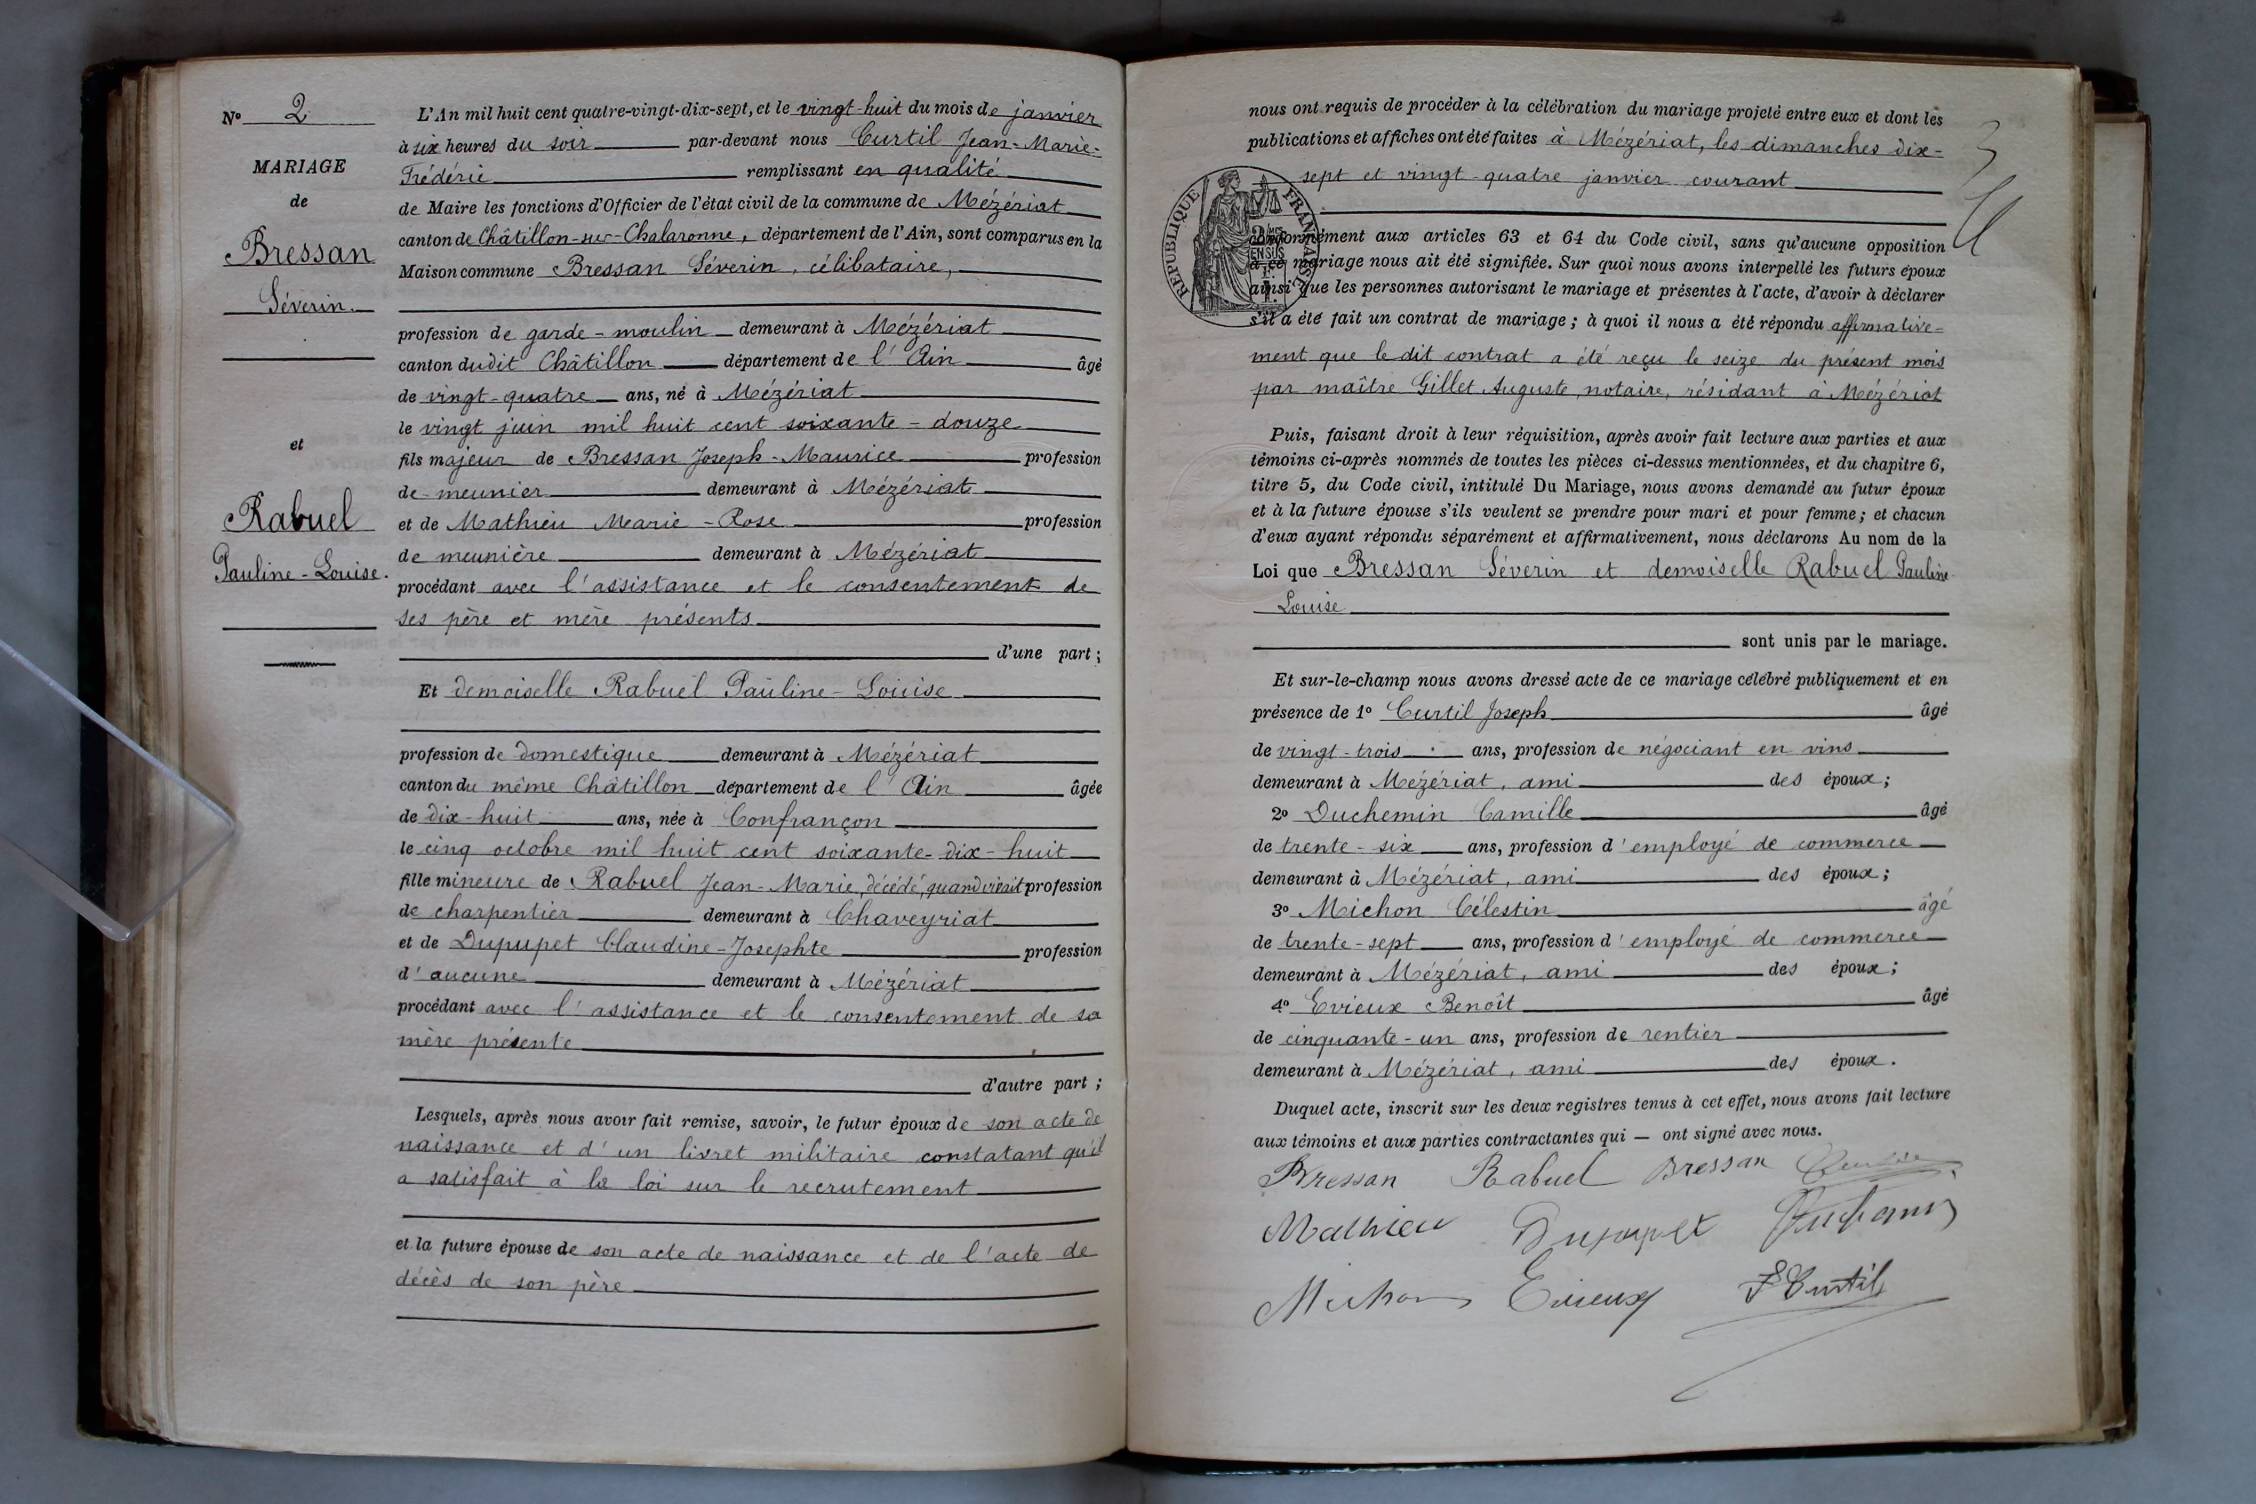 N° 2
MARIAGE
de
Bressan
Séverin.
et
Rabuel
Pauline-Louise.
L'An mil huit cent quatre-vingt-dix-sept, et le vingt-huit du mois de janvier
à six heures du soir par-devant nous Curtil Jean-Marie-
Frédéric remplissant en qualité
de Maire les fonctions d'Officier de l'état civil de la commune de Mézériat
canton de Châtillon-sur-Chalaronne, département de l'Ain, sont comparus en la
Maison commune Bressan Séverin, célibataire,
profession de garde-moulin demeurant à Mézériat
canton dudit Châtillon département de l'Ain âgé
de vingt-quatre ans, né à Mézériat
le vingt juin mil huit cent soixante-douze
fils majeur de Bressan Joseph-Maurice profession
de meunier demeurant à Mézériat
et de Mathieu Marie-Rose profession
de meunière demeurant à Mézériat
procédant avec l'assistance et le consentement de
ses père et mère présents
d'une part;
Et demoiselle Rabuel Pauline-Louise
profession de domestique demeurant à Mézériat
canton du même Châtillon département de l'Ain âgée
de dix-huit ans, née à Confrançon
le cinq octobre mil huit cent soixante-dix-huit
fille mineure de Rabuel Jean-Marie, décédé, quand vivait profession
de charpentier demeurant à Chaveyriat
et de Dupupet Claudine-Josephte profession
d'aucune demeurant à Mézériat
procédant avec l'assistance et le consentement de sa
mère présente
d'autre part;
Lesquels, après nous avoir fait remise, savoir, le futur époux de son acte de
naissance et d'un livret militaire constatant qu'il
a satisfait à la loi sur le recrutement
et la future épouse de son acte de naissance et de l'acte de
décès de son père
nous ont requis de procéder à la célébration du mariage projeté entre eux et dont les
publications et affiches ont été faites à Mézériat, les dimanches dix-
sept et vingt-quatre janvier courant
RÉPUBLIQUE FRANÇAISE
conformément aux articles 63 et 64 du Code civil, sans qu'aucune opposition
à ce mariage nous ait été signifiée. Sur quoi nous avons interpellé les futurs époux
ainsi que les personnes autorisant le mariage et présentes à l'acte, d'avoir à déclarer
s'il a été fait un contrat de mariage; à quoi il nous a été répondu affirmative-
ment que le dit contrat a été reçu le seize du présent mois
par maître Gillet Auguste, notaire, résidant à Mézériat
Puis, faisant droit à leur réquisition, après avoir fait lecture aux parties et aux
témoins ci-après nommés de toutes les pièces ci-dessus mentionnées, et du chapitre 6,
titre 5, du Code civil, intitulé Du Mariage, nous avons demandé au futur époux
et à la future épouse s'ils veulent se prendre pour mari et pour femme; et chacun
d'eux ayant répondu séparément et affirmativement, nous déclarons Au nom de la
Loi que Bressan Séverin et demoiselle Rabuel Pauline
Louise
sont unis par le mariage.
Et sur-le-champ nous avons dressé acte de ce mariage célébré publiquement et en
présence de 1° Curtil Joseph âgé
de vingt-trois ans, profession de négociant en vins
demeurant à Mézériat, ami des époux;
2° Duchemin Camille âgé
de trente-six ans, profession d'employé de commerce
demeurant à Mézériat, ami des époux;
3° Michon Célestin âgé
de trente-sept ans, profession d'employé de commerce
demeurant à Mézériat, ami des époux;
4° Evieux Benoît âgé
de cinquante-un ans, profession de rentier
demeurant à Mézériat, ami des époux.
Duquel acte, inscrit sur les deux registres tenus à cet effet, nous avons fait lecture
aux témoins et aux parties contractantes qui — ont signé avec nous.
Bressan Rabuel Bressan
Mathieu Dupupet
Michon Evieux F Curtil